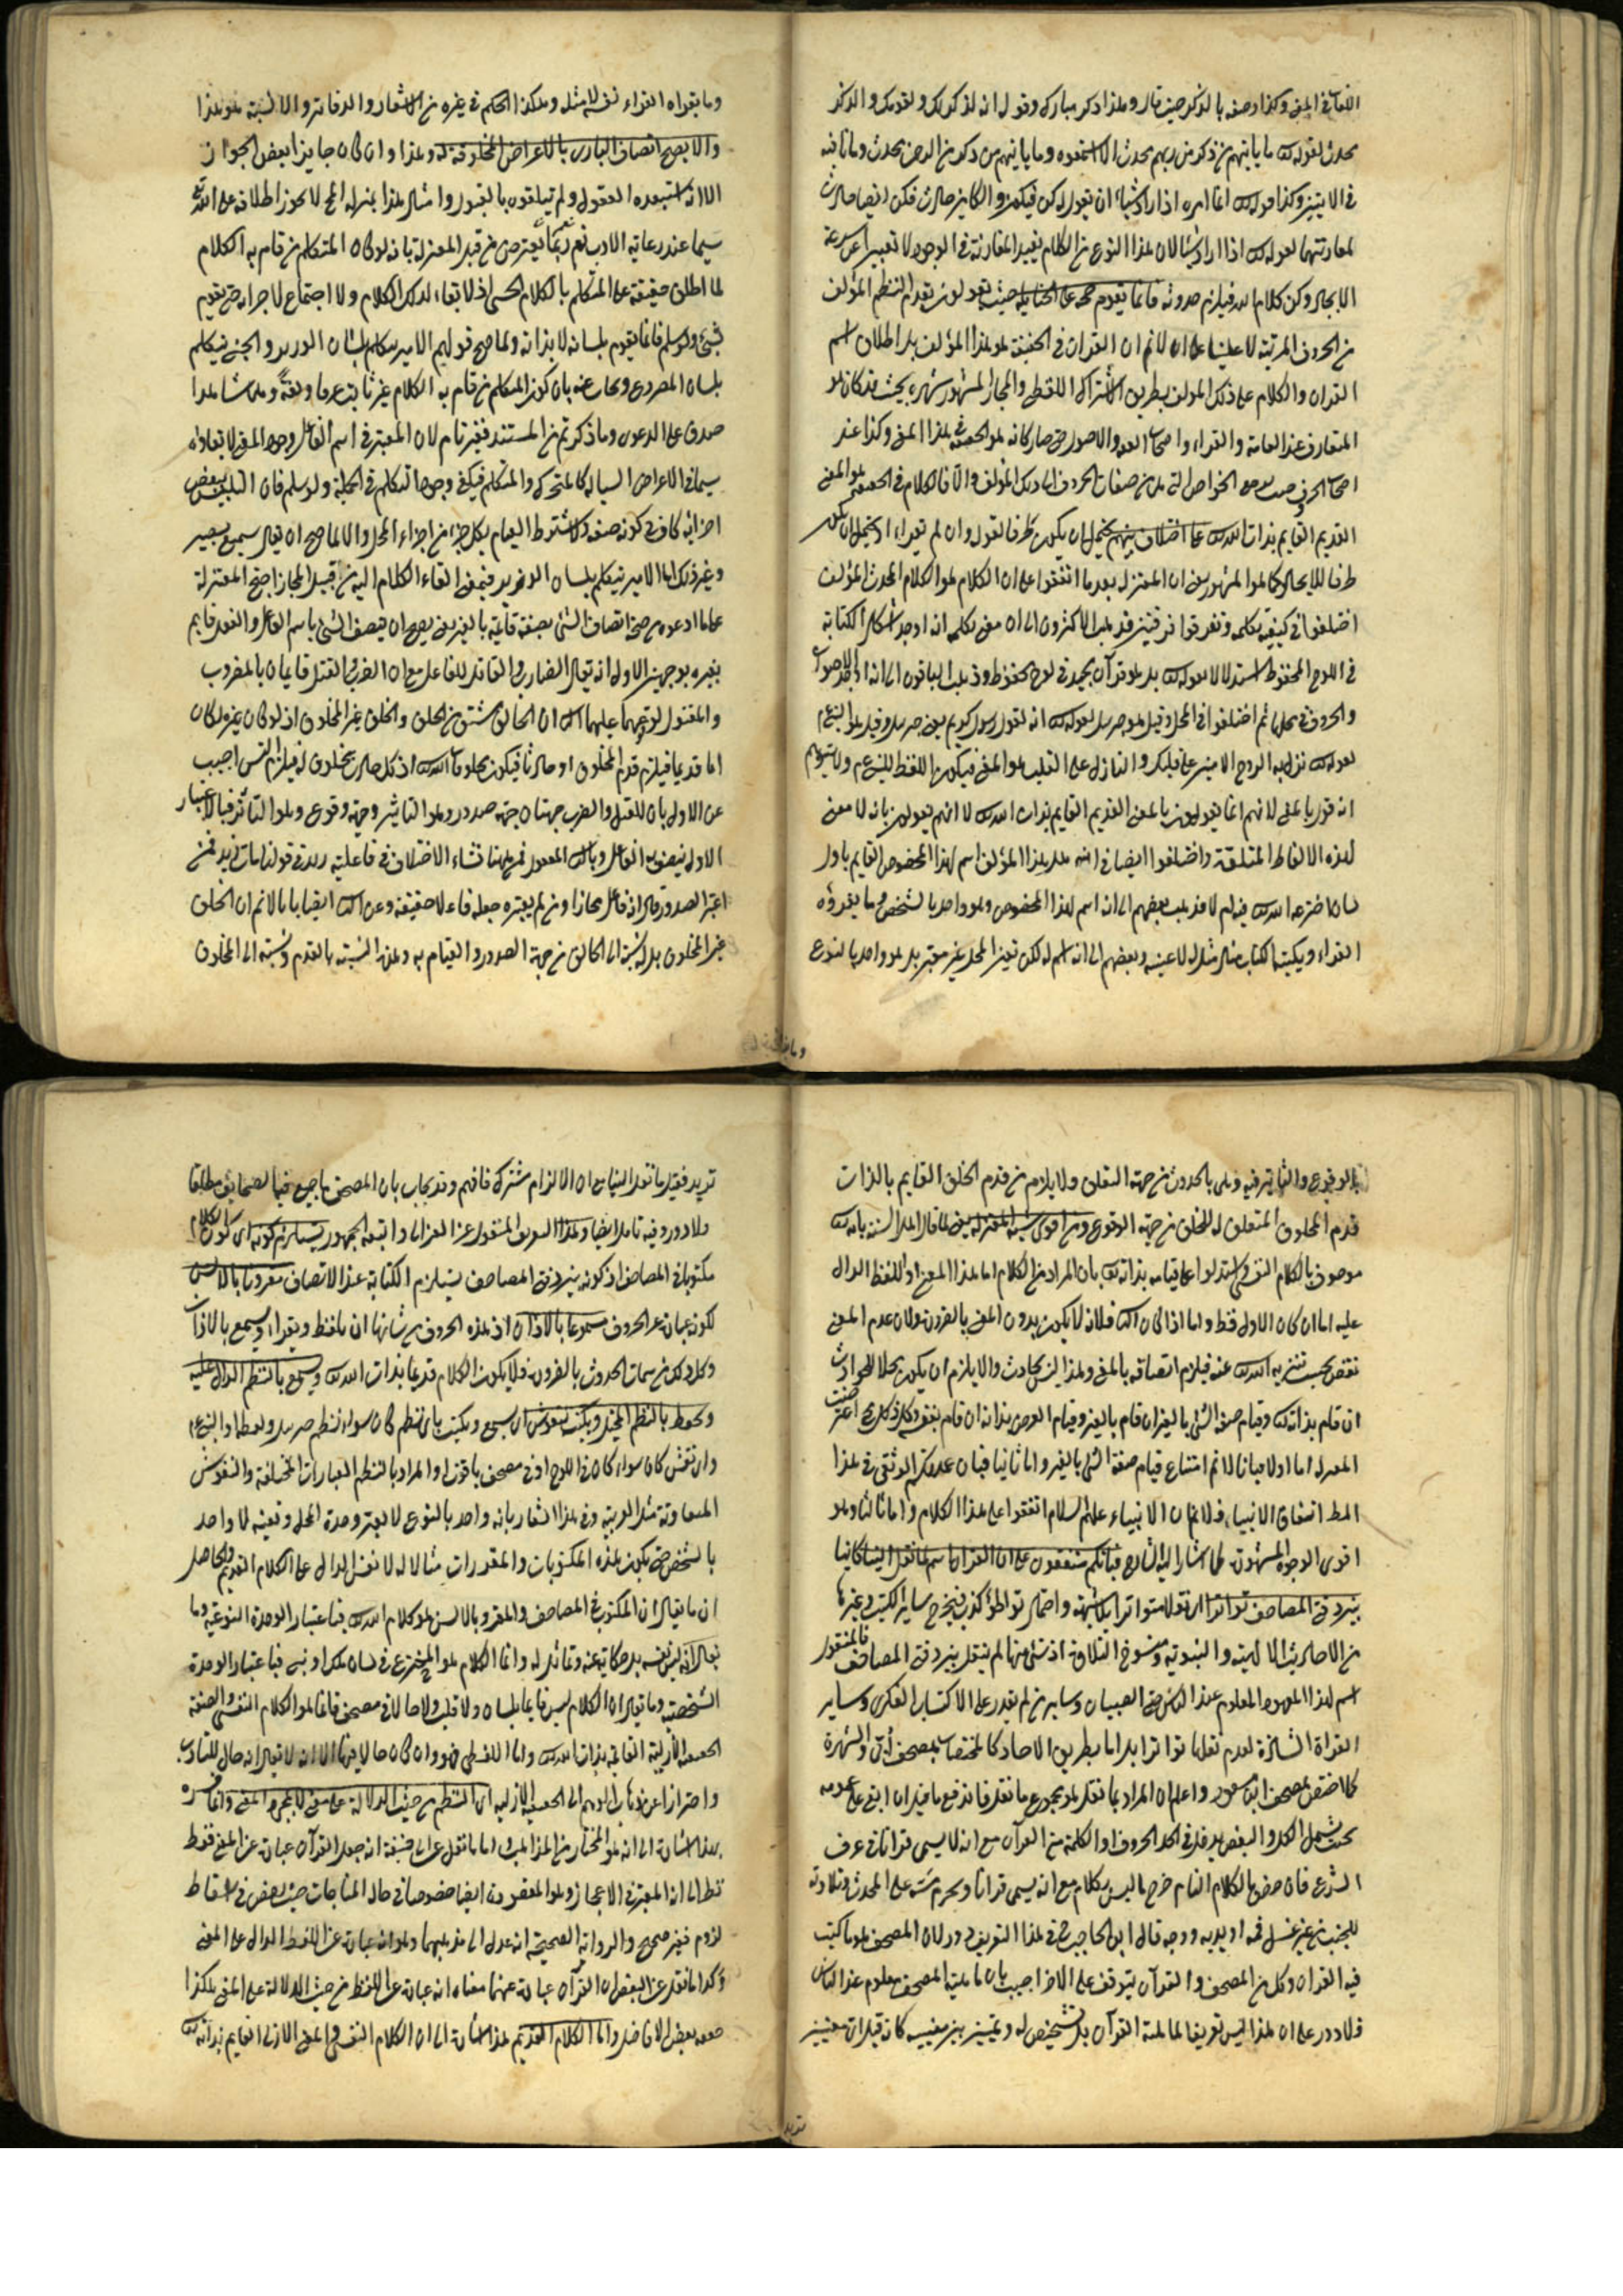 القائم في المعنى وكذا وصفه بالذكر حيث قال وهذا ذكر مبارك وقوله انه لذكر لك ولقومك والذكر
محدث لقوله تع ما ياتيهم من ذكر من ربهم محدث الا استمعوه وما ياتيهم من ذكر من الرحمن محدث وما نافية
في الايتين وكذا قوله تع انما امره اذا اراد شيئا ان يقول له كن فيكون والكاين حادث فكن ايضا حادث
لمقارنتهما لقوله تع اذا اراد شيئا لان هذا النوع من الكلام يفيد المقارنة في الوجود لا تعبير عن سرعة
الايجاد وكن كلام الله فيلزم حدوثه فانما يقوم حجة على الحنابلة حيث يقولون بقدم النظم المؤلف
من الحروف المرتبة لا علينا على ان لا نم ان القران في الحقيقة هو هذا المؤلف بل اطلاق اسم
القران والكلام على ذلك المؤلف بطريق الاشتراك اللفظي والمجاز المشهور شهرة بحيث قد كان هو
المتعارف عند العامة والقراء واصحاب العد والاصول حتى صار كانه هو الحقيقة في هذا المعنى وكذا عند
اصحاب الحرف حيث الخواص التي هي من صفات الحروف انما هي لذلك المؤلف والا فالكلام في الحقيقة هو المعنى
القديم القايم بذات الله تع على اختلاف بينهم يحتمل ان يكون ظرفا لقوله وان لم تقراء او يحتمل ان يكون
ظرفا للايحاد كما هو المشهور يعنى ان المعتزلة بعد ما اتفقوا على ان الكلام هو الكلام المحدث المؤلف
اختلفوا في كيفية تكلمه وتفرقوا فرقتين فذهب الاكثرون الى ان معنى تكلمه انه اوجد اشكال الكتابة
في اللوح المحفوظ استدلالا بقوله تع بل هو قرآن مجيد في لوح محفوظ وذهب الباقون الى انه اوجد الاصوات
والحروف في محلها ثم اختلفوا في المحل وقيل هو جبريل لقوله تع انه لقول رسول كريم يعنى جبريل وقيل هو النبي عم
لقوله تع نزل به الروح الامين على قلبك والنازل على القلب هو المعنى فيكون اللفظ للنبي عم ولا يتوهم
انه قول بالمعنى لانهم انما يقولون بالمعنى القديم القايم بذات الله تع لا انهم يقولون بانه لا معنى
لهذه الالفاظ المتلفقة واختلفوا ايضا في انه هل هذا المؤلف اسم لهذا المخصوص القايم باول
لسان اخترعه الله تع فيه ام لا فذهب بعضهم الى انه اسم لهذا المخصوص وهو واحد بالشخص وما يقرؤه
القراء ويكتبه الكتاب مثال مثله لا عينه وبعضهم الى انه اسم له لكن تعين المحل غير معتبر بل هو واحد بالنوع
وما يقراه القراء نفسه لا مثله وهكذا الحكم في غيره من الاشعار والدفاتر والالسنة هو هذا
والا يصح اتصاف الباري بالاعراض المخلوقة له وهذا وان كان جايزا بعض الجواز
الا انه استبعده العقول ولم يتلقوه بالقبول وامثال هذا بمنزلة المحال لا يجوز اطلاقه على الله تع
سيما عند رعاية الادب نعم ربما يعترض من قبل المعتزلة بانه لو كان المتكلم من قام به الكلام
لما اطلق حقيقة على المتكلم بالكلام الحسى اذ لا بقاء لذلك الكلام ولا اجتماع لاجزائه حتى يقوم
بشئ ولو سلم فانما يقوم بلسانه لا بذاته ولما صح قولهم الامير يتكلم بلسان الوزير والجنى يتكلم
بلسان المصروع ويجاب عنه بان كون المتكلم من قام به الكلام غير ثابت عرفا ولغة
صدق على الدعوى وما ذكرتم من المستند فغير تام لان المعتبر في اسم الفاعل وجود المعنى لا بقاؤه
سيما في الاعراض السيالة كالمتحرك والمتكلم فيكفى وجود التكلم في الجملة ولو سلم فان التلبس ببعض
اجزائه كاف في كونه صفة ولا يشترط القيام بكل جزء من اجزاء المحل والا لما صح ان يقال سميع بصير
وغير ذلك اما الامير يتكلم بلسان الوزير فبمعنى القاء الكلام اليه من قبيل المجاز احتج المعتزلة
على ما ادعوه من صحة اتصاف الشئ بصفة قائمة بالغير يعنى يصح ان يتصف الشئ باسم الفاعل والفعل قايم
بغيره بوجهين الاول انه يقال الضارب والقاتل للفاعل مع ان الضرب والقتل قايمان بالمضروب
والمقتول لوقوعهما عليهما الثاني ان الخالق مشتق من الخلق والخلق غير المخلوق اذ لو كان غيره لكان
اما قديما فيلزم قدم المخلوق او حادثا فيكون مخلوقا لله تع اذ كل حادث مخلوق له فيلزم التس اجيب
عن الاول بان للقتل والضرب جهتان جهة صدور وهو التاثير وجهة وقوع وهو التاثر فبالاعتبار
الاول يتصف به الفاعل وبالثاني المفعول فمن هنا نشاء الاختلاف في فاعلية زيد في قولنا مات زيد فمن
اعتبر الصدور قال انه فاعل مجازا ومن لم يعتبره جعله فاعلا حقيقة وعن الثاني ايضا بانا لا نم ان الخلق
غير المخلوق بل له نسبة الى الخالق من جهة الصدور والقيام به وهذه النسبة بالقدم ونسبة الى المخلوق
بالوقوع والتاثير فيه وهي بالحدوث من جهة التعلق ولا يلزم من قدم الخلق القايم بالذات
قدم المخلوق المتعلق له للخلق من جهة الوقوع ومن اقوى شبه المعتزلة يعنى لما قال اهل السنة بانه تع
موصوف بالكلام النفسي استدلوا على قيامه بذاته تع بان المراد من الكلام اما هذا المعنى او اللفظ الدال
عليه اما ان كان الاول فقط واما اذا كان الثاني فلانه لا يكون بدون المعنى بالضرورة ولان عدم المعنى
نقص يجب تنزيه الله تع عنه فيلزم اتصافه بالمعنى وهذا ليس بحادث والا يلزم ان يكون محلا للحوادث
ان قام بذاته تع وقيام صفة الشئ بالغير ان قام بالغير وقيام العرض بذاته ان قام بنفسه وكل ذلك مح
اما اولا فبانا لا نم امتناع قيام صفة الشئ بالغير واما ثانيا فبان عمدتكم الوثقى في هذا
المط اتفاق الانبياء فلا نم ان الانبياء عليهم السلام اتفقوا على هذا الكلام واما ثالثا وهو
اقوى الوجوه المشهورة لما اشار اليه الشارح فبانكم متفقون على ان القران اسم لما نقل الينا كاينا
بين دفتي المصاحف تواترا اى نقلا متواترا بلا شبهة واحتمال تواطؤ كذب فيخرج سائر الكتب وغيرها
من الاحاديث الالهية والنبوية ومنسوخ التلاوة اذ شئ منها لم ينقل بين دفتي المصاحف فالمنقول
اسم لهذا المعهود المعلوم عند الناس حتى الصبيان وسائر من لم يقدر على الاكتساب الفكرى وسائر
القراءة الشاذة لعدم نقلها تواترا بل اما بطريق الاحاد كالمختص بمصحف أبيّ والشهرة
كما اختص بمصحف ابن مسعود واعلم ان المراد بما نقل هو مجموع ما نقل فاندفع ما قيل ان ابقى على عمومه
بحيث يشمل الكل والبعض يدخل في الحد الحروف او الكلمة من القرآن مع انه لا يسمى قرانا في عرف
الشرع فان خص بالكلام التام خرج ما ليس بكلام مع انه يسمى قرانا ويحرم مسه على المحدث وتلاوته
للجنب من غير غسل فمه او يديه ووجه قال ابن الحاجب في هذا التعريف دور لان المصحف هو ما كتب
فيه القران وكل من المصحف والقرآن يتوقف على الاخر اجيب بان ماهية المصحف معلوم عند الناس
فلا دور على ان هذا ليس تعريفا لماهية القرآن بل تشخيص له وتمييز بين معنييه كانه قيل اى معنيين
تريد فقيل ما نقل الينا مع ان الالزام مشترك فافهم وقد يجاب بان المصحف ما جمع فيه الصحايف مطلقا
فلا دور وفيه تامل ايضا وهذا التعريف المنقول عن الغزالى واتبعه الجمهور يستلزم كونه اى كون الكلام
مكتوبا في المصاحف اذ كونه بين دفتي المصاحف يستلزم الكتابة عند الانصاف مقروءا بالالسن
لكونه عبارة عن الحروف مسموعا بالاذان اذ هذه الحروف من شانها ان يلفظ ويقراء ويسمع بالاذان
وكل ذلك من سمات الحدوث بالضرورة فلا يكون الكلام قديما بذات الله تع ويسمع بالنظم الدال عليه
ويحفظ بالنظم المخيل ويكتب بنقوش اى يسمع ويكتب باى نظم كان سواء نظم جبريل والنبي عم
واى نقش كان سواء كان في اللوح او في مصحف ياقوت او المراد بالنظم العبارات المختلفة والنقوش
المتفاوتة وفي هذا اشعار بانه واحد بالنوع لا يعتبر وحدة المحل وتعينه لا واحد
بالشخص حتى يكون هذه المكتوبات والمقدورات مثالا له لا نفس الدال على الكلام القديم والحاصل
ان ما يقال ان المكتوب في المصاحف والمقروء بالالسن هو كلام الله تع فباعتبار الوحدة النوعية وما
يقال انه ليس نفسه بل حكاية عنه ومماثل له وانما الكلام هو المخترع في لسان ملك او نبى فباعتبار الوحدة
الشخصية وما يقال ان الكلام ليس قايما بلسان ولا قلب ولا حالا في مصحف فانما هو الكلام النفسي والصفة
الحقيقية الازلية القائمة بذات الله تع واما اللفظى فهو وان كان حالا فيها الا انه لا يقال انه حال للتادب
واحترازا عن ذهاب الوهم الى الحقيقى الازلى اى النظم من حيث الدلالة على معنى لا مجرد المعنى وانما فسره
بهذا اشارة الى انه هو المختار من المذاهب واما ما نقل عن ابى حنيفة انه جعل القرآن عبارة عن المعنى فقط
نظرا الى انه المعتبر في الاعجاز وهو المقصود ايضا خصوصا في حال المناجات حيث رخص في اسقاط
لزوم فغير صحيح والرواية الصحيحة انه عدل الى مذهبهما وهو انه عبارة عن اللفظ الدال على المعنى
وكذا ما نقل عن البعض ان القرآن عبارة عنهما معناه انه عبارة عن اللفظ من حيث الدلالة على المعنى هكذا
حققه بعض الافاضل واما الكلام القديم هذا اشارة الى ان الكلام النفسي والمعنى الازلى القايم بذاته تع